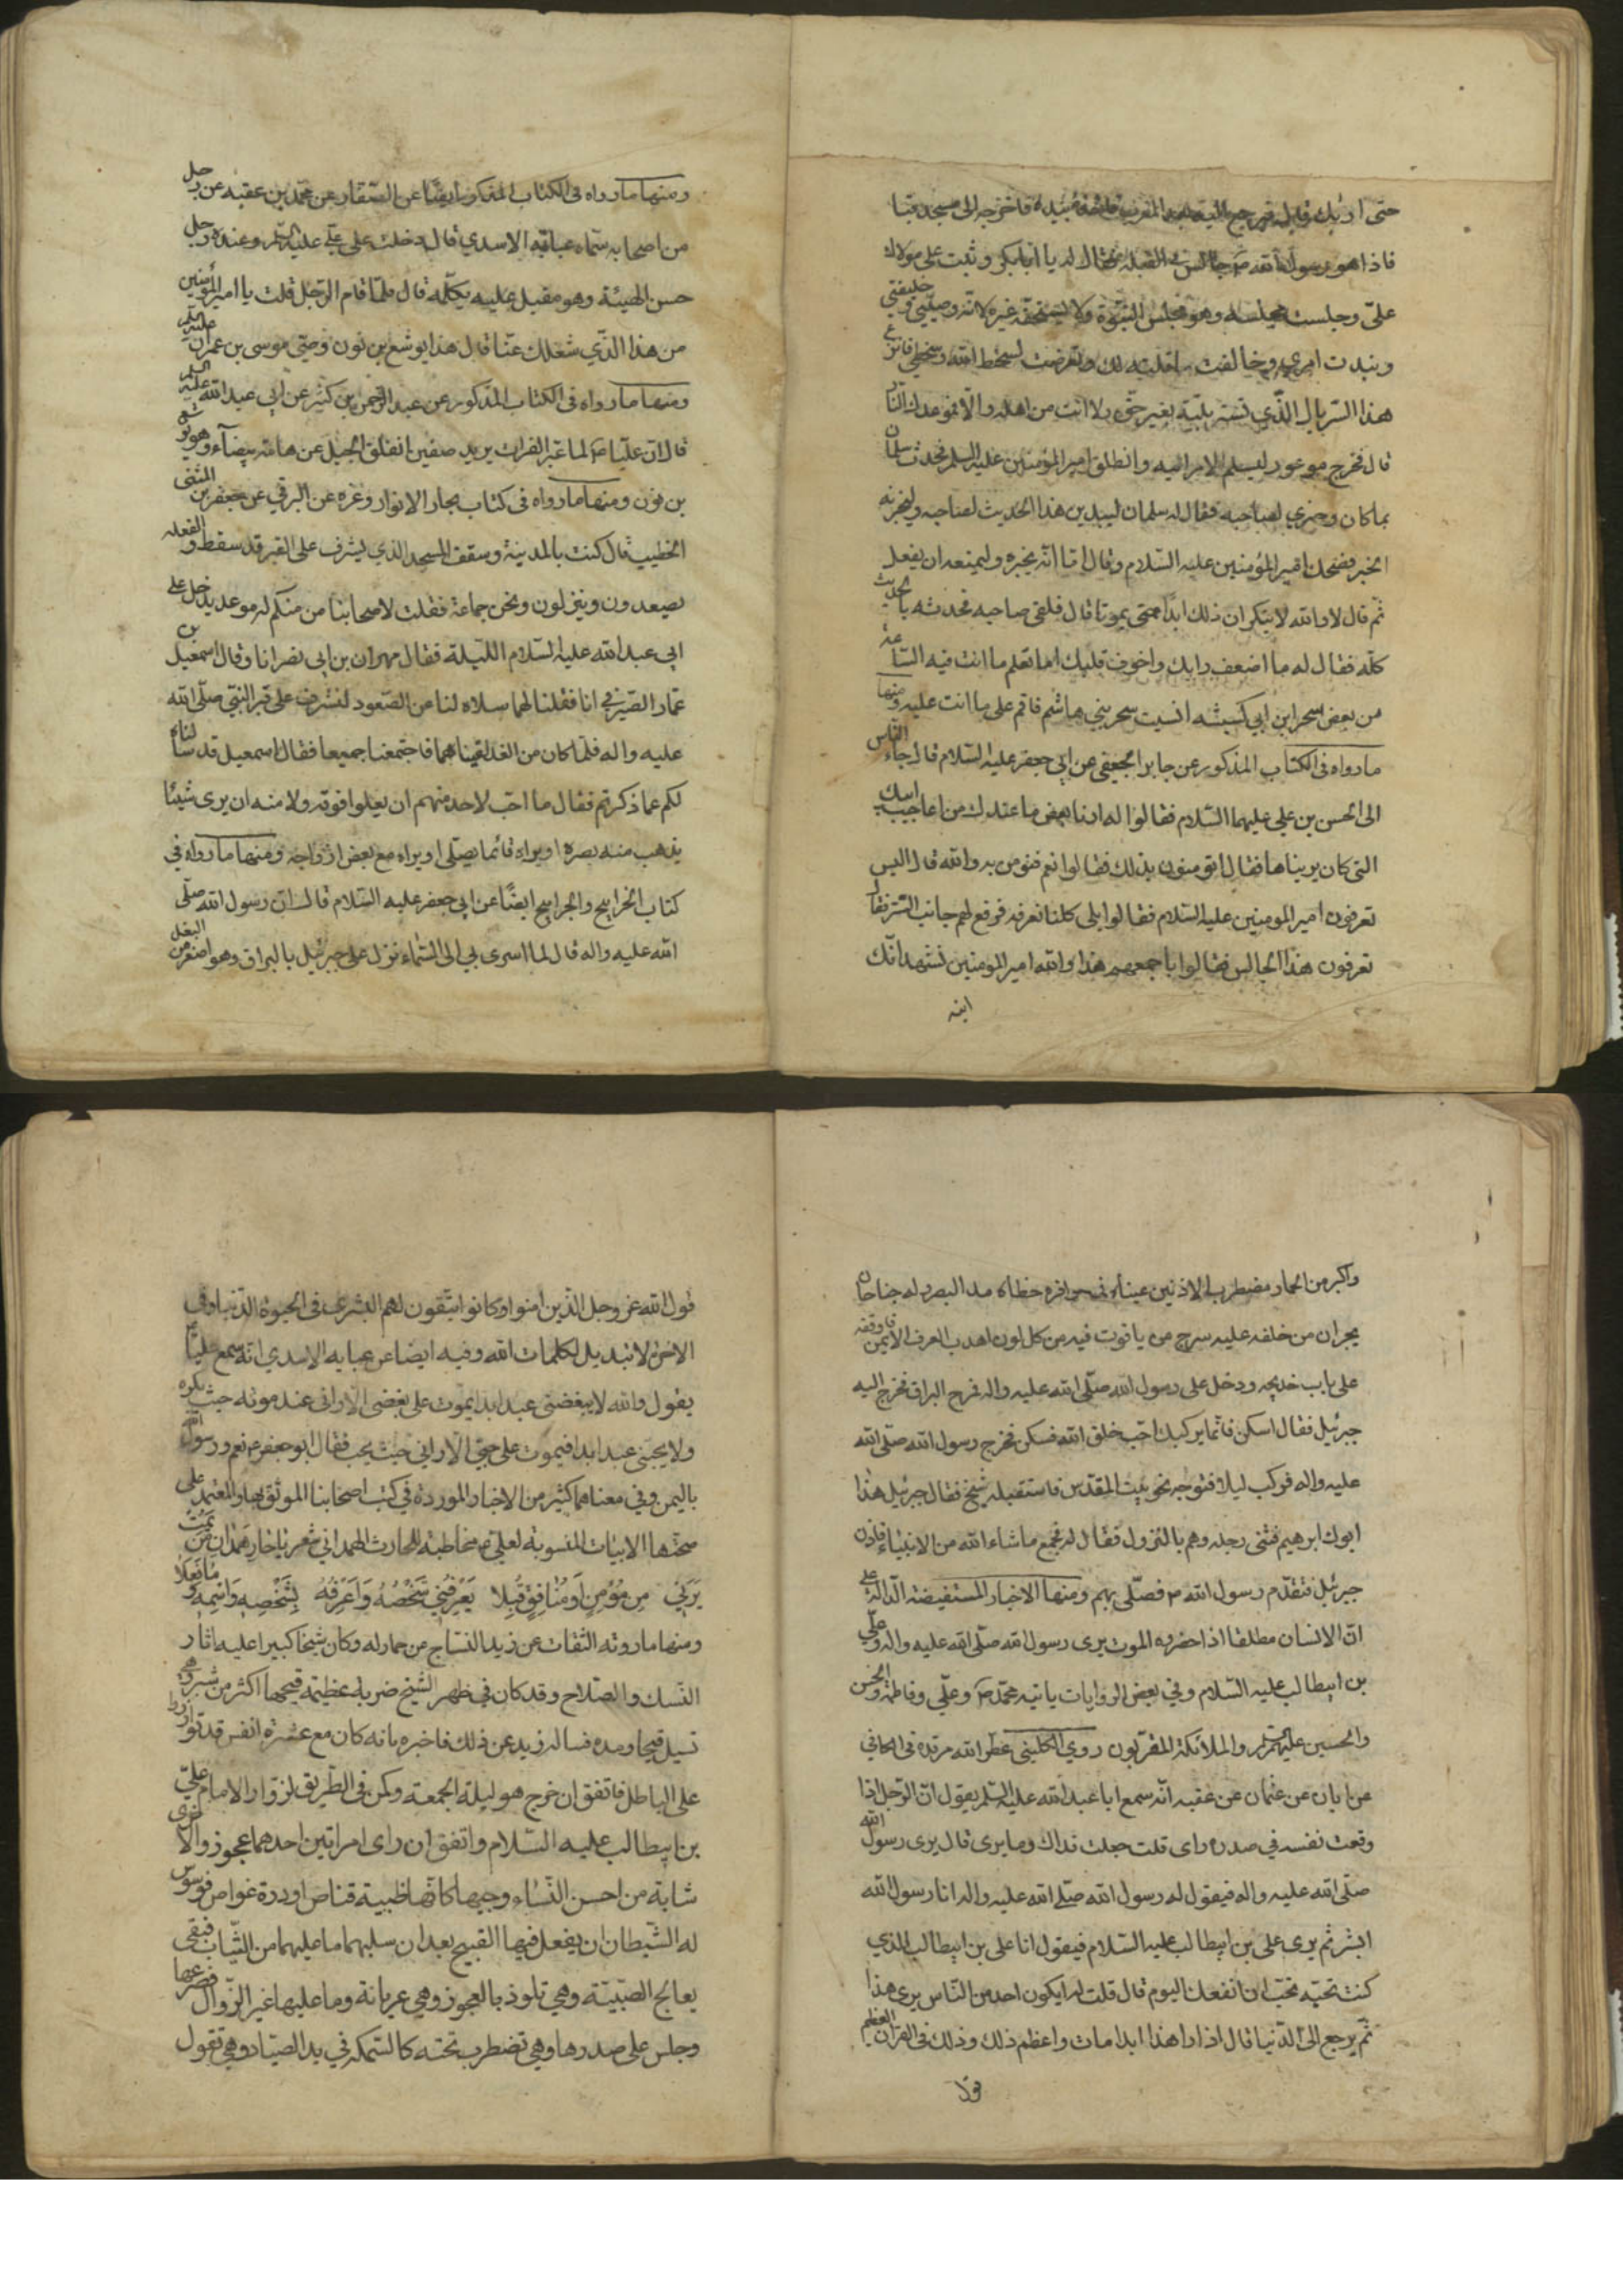 حتى اريك قابل فرجع اليه بعد المغرب قابضا بيده فاخرجه الى مسجد قبا
فاذا هو رسول الله ص جالس في القبلة فقال له يا ابابكر وثبت على مولاك
علي وجلست مجلسه وهو مجلس النبوة ولا يستحقه غيره لانه وصيي وخليفتي
ونبذت امري وخالفت ما قلته لك وتعرضت لسخط الله وسخطي فانزع
هذا السربال الذي تسربلته بغير حق ولا انت من اهله والا فموعدك النار
قال فخرج مذعورا ليسلم الامر اليه وانطلق امير المؤمنين عليه السلم فحدث سلمان
بما كان وجرى لصاحبه فقال له سلمان ليبدين هذا الحديث لصاحبه وليخبرنه
الخبر فضحك امير المؤمنين عليه السلام وقال اما انه يخبره وليمنعه ان يفعل
ثم قال لا والله لا يتكران ذلك ابدا حتى يموتا قال فلقى صاحبه فحدثه بالحديث
كله فقال له ما اضعف رايك واخوف قلبك اما تعلم ما انت فيه الساعة
من بعض سحر ابن ابي كبشه انسيت سحر بني هاشم فاقم على ما انت عليه ومنها
ما رواه في الكتاب المذكور عن جابر الجعفي عن ابي جعفر عليه السلام قال جاء الناس
الى الحسن بن علي عليهما السلام فقالوا له ارنا بعض ما عندك من اعاجيب ابيك
التي كان يريناها فقال اتومنون بذلك فقالوا نعم نومن به والله قال اليس
تعرفون امير المومنين عليه السلام فقالوا بلى كلنا نعرفه فرفع لهم جانب الستر فقال
تعرفون هذا الجالس فقالوا باجمعهم هذا والله امير المومنين نشهد انك
ابنه
ومنها ما رواه في الكتاب المذكور ايضا عن الصفار عن محمد بن عقبه عن رجل
من اصحابه سماه عبايه الاسدي قال دخلت على علي عليه السلم وعنده رجل
حسن الهيئة وهو مقبل عليه يكلمه قال فلما قام الرجل قلت يا امير المؤمنين
من هذا الذي شغلك عنا قال هذا يوشع بن نون وصي موسى بن عمران عليه السلم
ومنها ما رواه في الكتاب المذكور عن عبد الرحمن بن كثير عن ابي عبد الله عليه السلم
قال ان عليا ص لما عبر الفرات يريد صفين انفلق الجبل عن هامة بيضاء وهو يوشع
بن نون ومنها ما رواه في كتاب بحار الانوار وغره عن البرقي عن جعفر بن المثنى
الخطيب قال كنت بالمدينة وسقف المسجد الذي يشرف على القبر قد سقط والفعله
يصعدون وينزلون ونحن جماعة فقلت لاصحابنا من منكم له موعد يدخل على
ابي عبد الله عليه السلام الليلة فقال مهران بن ابي نصر انا وقال اسمعيل بن
عمار الصيرفي انا فقلنا لهما سلاه لنا عن الصعود لنشرف على قبر النبي صلى الله
عليه واله فلما كان من الغد لقيناهما فاجتمعنا جميعا فقال اسمعيل قد سالناه
لكم عما ذكرتم فقال ما احب لاحد منهم ان يعلوا فوقه ولا امنه ان يرى شيئا
يذهب منه بصره او يراه قائما يصلى او يراه مع بعض ازواجه ومنها ما رواه في
كتاب الخرايج والجرايح ايضا عن ابي جعفر عليه السلام قال ان رسول الله صلى
الله عليه واله قال لما اسرى بي الى السماء نزل على جبرئيل بالبراق وهو اصغر من البغل
واكبر من الحمار مضطرب الاذنين عيناه في حوافره خطاه مد البصر له جناحان
يجران من خلفه عليه سرج من ياقوت فيه من كل لون اهدب العرف الايمن فاوقفه
على باب خديجه ودخل على رسول الله صلى الله عليه واله فمرح البراق فخرج اليه
جبرئيل فقال اسكن فانما يركبك احب خلق الله فسكن فخرج رسول الله صلى الله
عليه واله فركب ليلا فتوجه نحو بيت المقدس فاستقبله شيخ فقال جبرئيل هذا
ابوك ابرهيم فثنى رجله وهم بالنزول فقال له فجمع ما شاء الله من الانبياء فاذن
جبرئيل فتقدم رسول الله ص فصلى بهم ومنها الاخبار المستفيضة الدالة على
ان الانسان مطلقا اذا حضره الموت يرى رسول الله صلى الله عليه واله وعلي
بن ابيطالب عليه السلام وفي بعض الروايات ياتيه محمد ص وعلي وفاطمة والحسن
والحسين عليهم السلم والملائكة المقربون روى الكليني عطر الله مرقده في الكافي
عن ابان عن عثمان عن عقبه انه سمع ابا عبد الله عليه السلم يقول ان الرجل اذا
وقعت نفسه في صدره راى قلت جعلت فداك وما يرى قال يرى رسول الله
صلى الله عليه واله فيقول له رسول الله صلى الله عليه واله انا رسول الله
ابشر ثم يرى علي بن ابيطالب عليه السلام فيقول انا علي بن ابيطالب الذي
كنت تحبه تحب ان انفعك اليوم قال قلت له ايكون احد من الناس يرى هذا
ثم يرجع الى الدنيا قال اذا راى هذا ابدا مات واعظم ذلك وذلك في القران العظيم
قول
قول الله عز وجل الذين امنوا وكانوا يتقون لهم البشرى في الحيوة الدنيا وفي
الاخرة لا تبديل لكلمات الله وفيه ايضا عن عبايه الاسدي انه سمع عليا ع
يقول والله لا يبغضني عبد ابدا يموت على بغضي الا راني عند موته حيث يكره
ولا يحبني عبد ابدا فيموت على حبي الا راني حيث يحب فقال ابو جعفر ع نعم ورسول الله
باليمن وفي معناهما كثير من الاخبار الموردة في كتب اصحابنا الموثق بها والمعتمد على
صحتها الابيات المنسوبة لعلي ع مخاطبة للحارث الهمداني شعر يا حار همدان من يمت
يرني من مؤمن او منافق قبلا يعرفني شخصه واعرفه بشخصه واسمه وما فعلا
ومنها ما روته الثقات عن زيد النساج عن جار له وكان شيخا كبيرا عليه اثار
النسك والصلاح وقد كان في ظهر الشيخ ضربة عظيمة قيحها اكثر من شبر وهي
تسيل قيحا ومده فساله زيد عن ذلك فاخبره بانه كان مع عشرة انفس قد
على الباطل فاتفق ان خرج هو ليلة الجمعة وكمن في الطريق لزوار الامام علي
بن ابيطالب عليه السلام واتفق ان راى امراتين احدهما عجوز والاخرى
شابة من احسن النساء وجها كانها ظبية قناص او درة غواص فوسوس
له الشيطان ان يفعل فيها القبيح بعد ان سلبهما ما عليهما من الثياب فبقى
يعالج الصبية وهي تلوذ بالعجوز وهي عريانة وما عليها غير السروال فصرعها
وجلس على صدرها وهي تضطرب تحته كالسمكه في يد الصياد وهي تقول